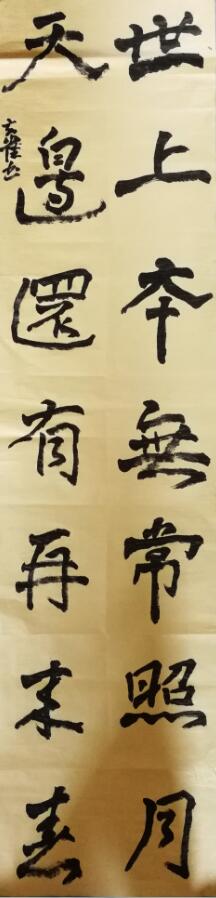 世上夲無常照月
天邊還有再来春